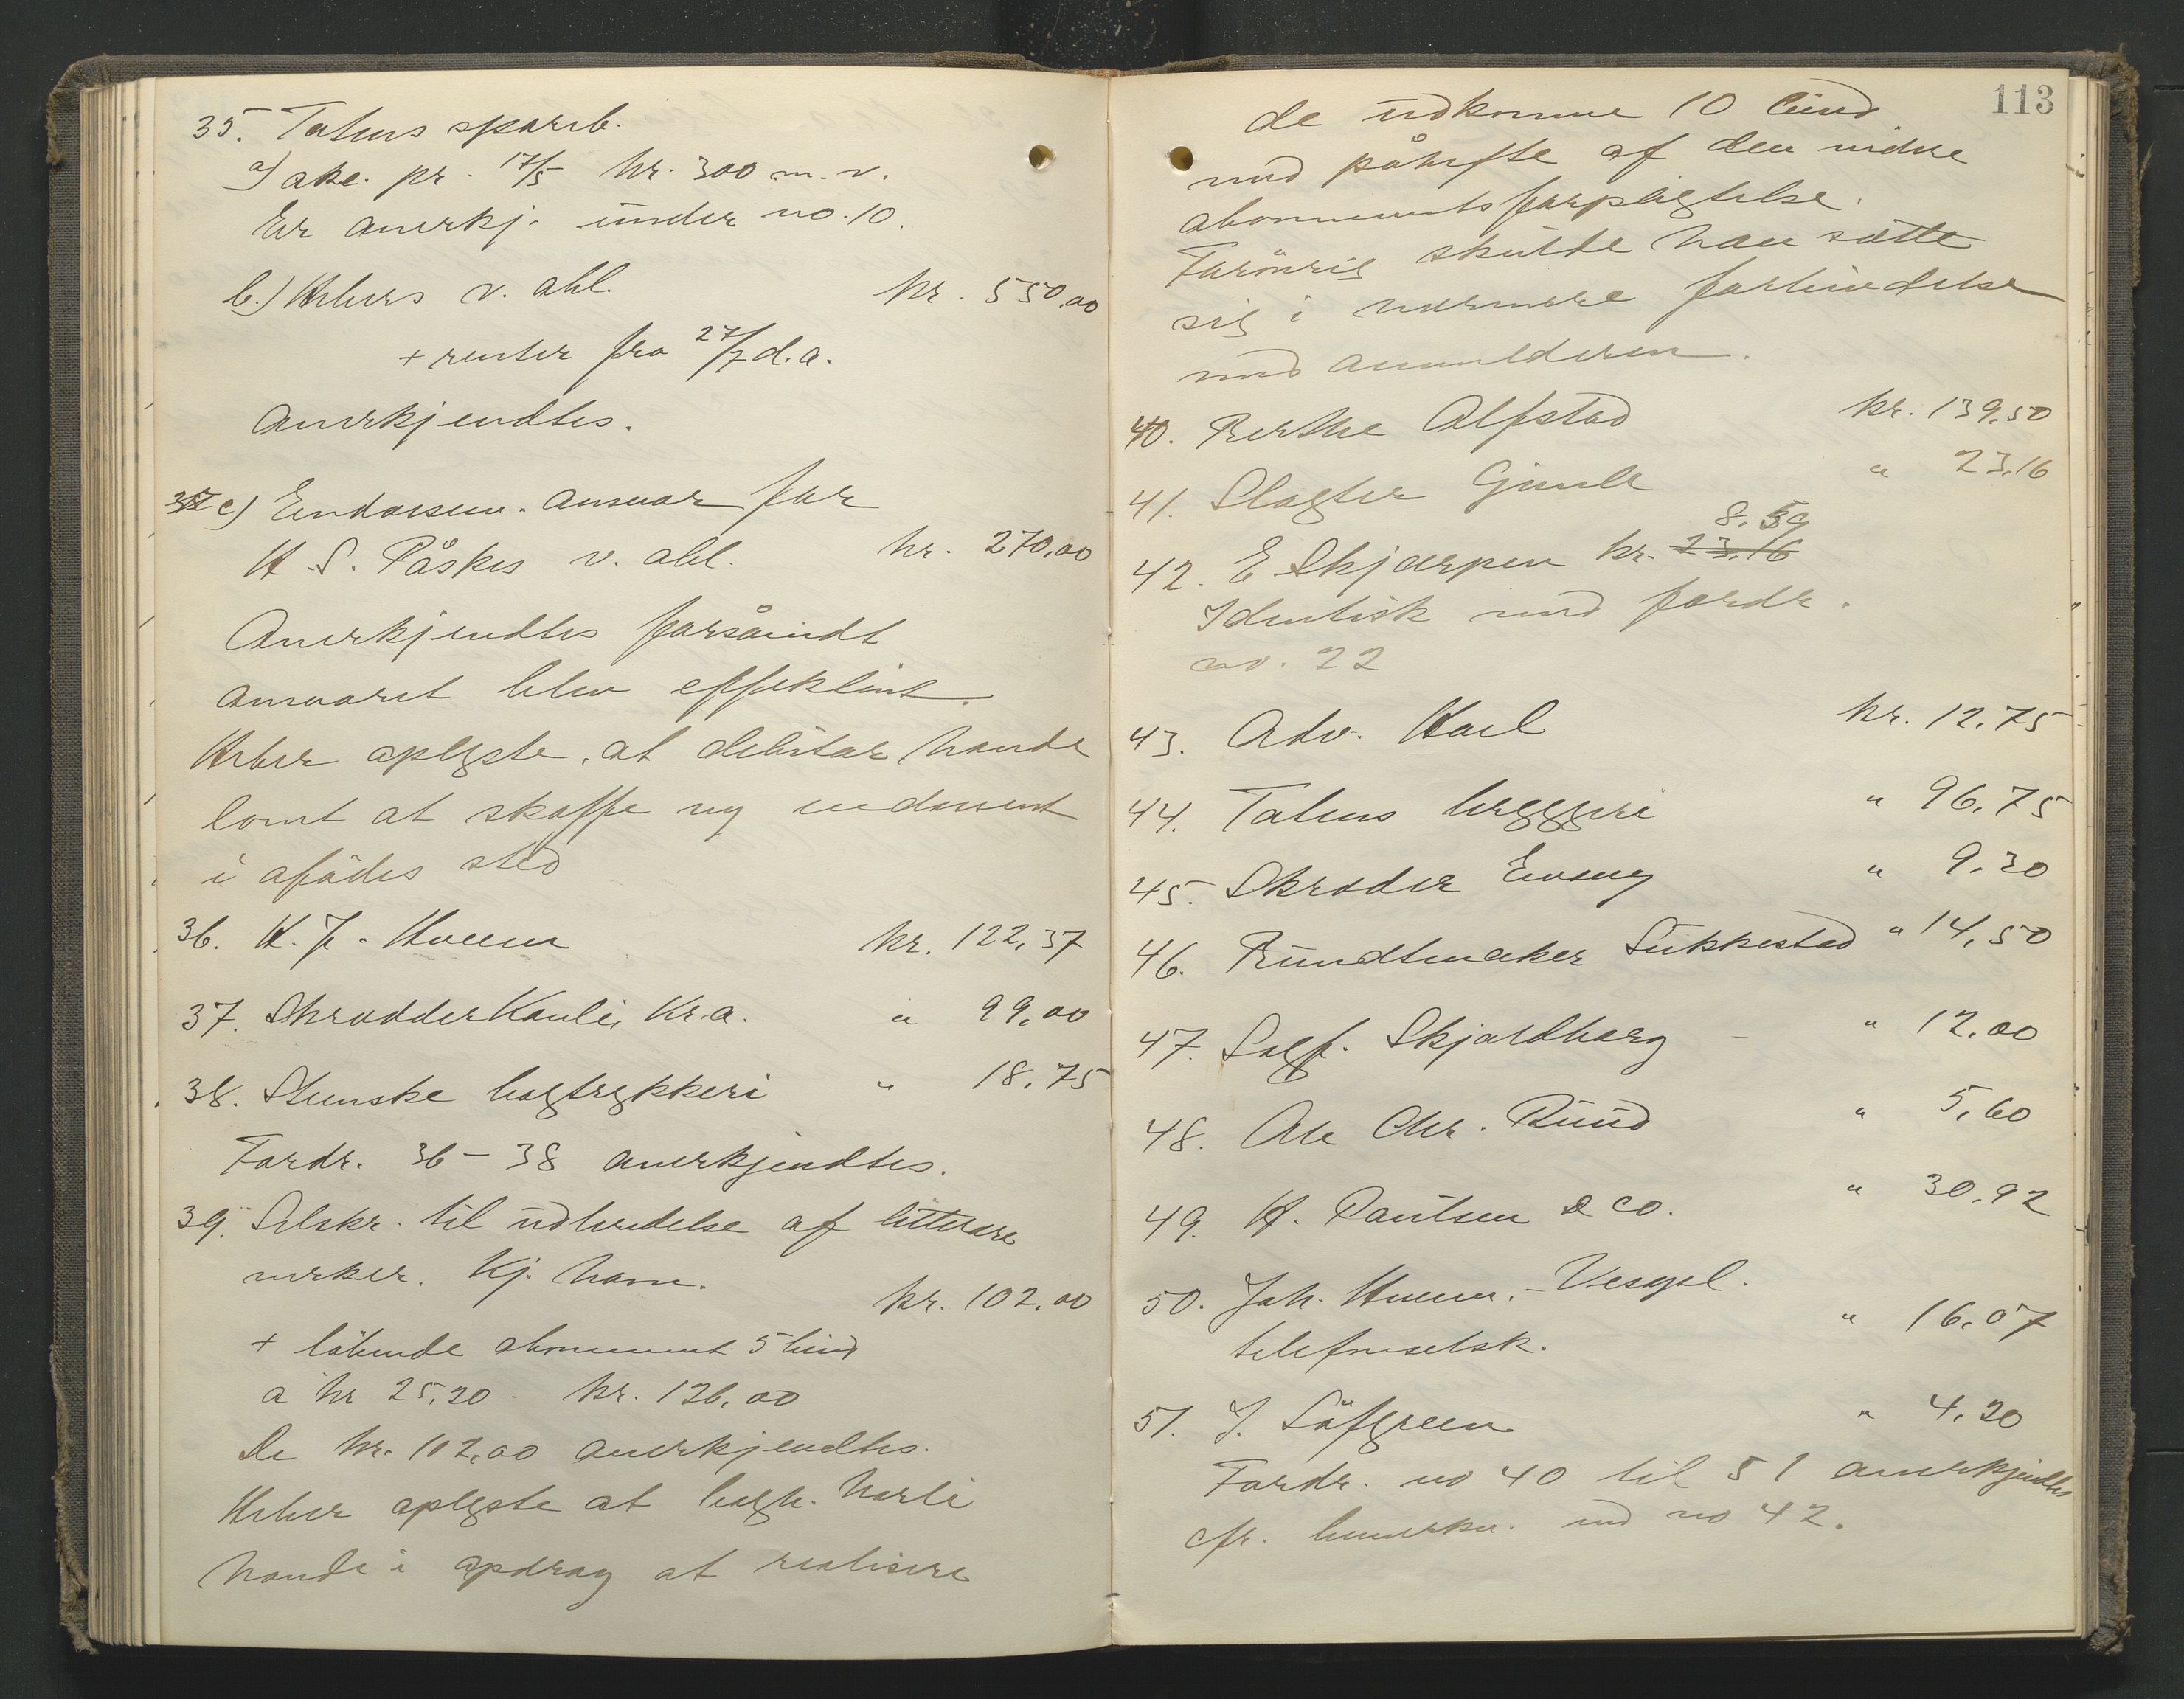 35. Totens spareb.
a) ake. pr. 17/5 kr. 300 m. v.
Er anerkj. under no. 10.
b.) Hrbers v. obl. kr. 550.00
+ renter fra 27/7 d. a.
Anerkjendtes.
c) Endossem. ansvar for
H. S. Påskes v. obl. kr. 270,00
Anerkjendtes forsåvidt
ansvaret blev effektivt.
Hrber oplyste, at debitor havde
lovet at skaffe ny endossent
i afdødes sted
36. H. J. Hveem kr. 122,37
37. Skrædder Kaule, Kr.a. " 99,00
38. Stenske bogtrykkeri " 18,75
Fordr. 36 - 38 anerkjendtes.
39. Selsk. til udbredelse af litterære
verker. Kj. havn. kr. 102.00
+ løbende abonnement 5 bind
a kr 25,20. kr. 126,00
De kr. 102,00 anerkjendtes.
Hrber oplyste at bogh. Narli
havde i opdrag at realisere
113
de udkomne 10 bind
med påhefte af den videre
abonnementsforpligtelse.
Forøvrig skulde han sætte
sig i nærmere forbindelse
med anmelderen.
40. Berthe Alfstad kr. 139,50
41. Slagter Gimle " 23,16
42. E Skjærpen kr. 23,16 8,59
Identisk med fordr.
no. 22
43. Adv. Hoel kr. 12,75
44. Totens bryggeri " 96,75
45. Skræder Evang " 9,30
46. Bundtmaker Sukkestad " 14,50
47. Solf. Skjoldborg - " 12,00
48. Ole Chr. Ruud " 5,60
49. H. Paulsen & co. " 30,92
50. Joh. Hveem. - Vesopl.
telefonselsk. " 16,07
51. J. Löfgreen " 4,20
Fordr. no 40 til 51 anerkjendtes
cfr. bemerkn. ved no 42.